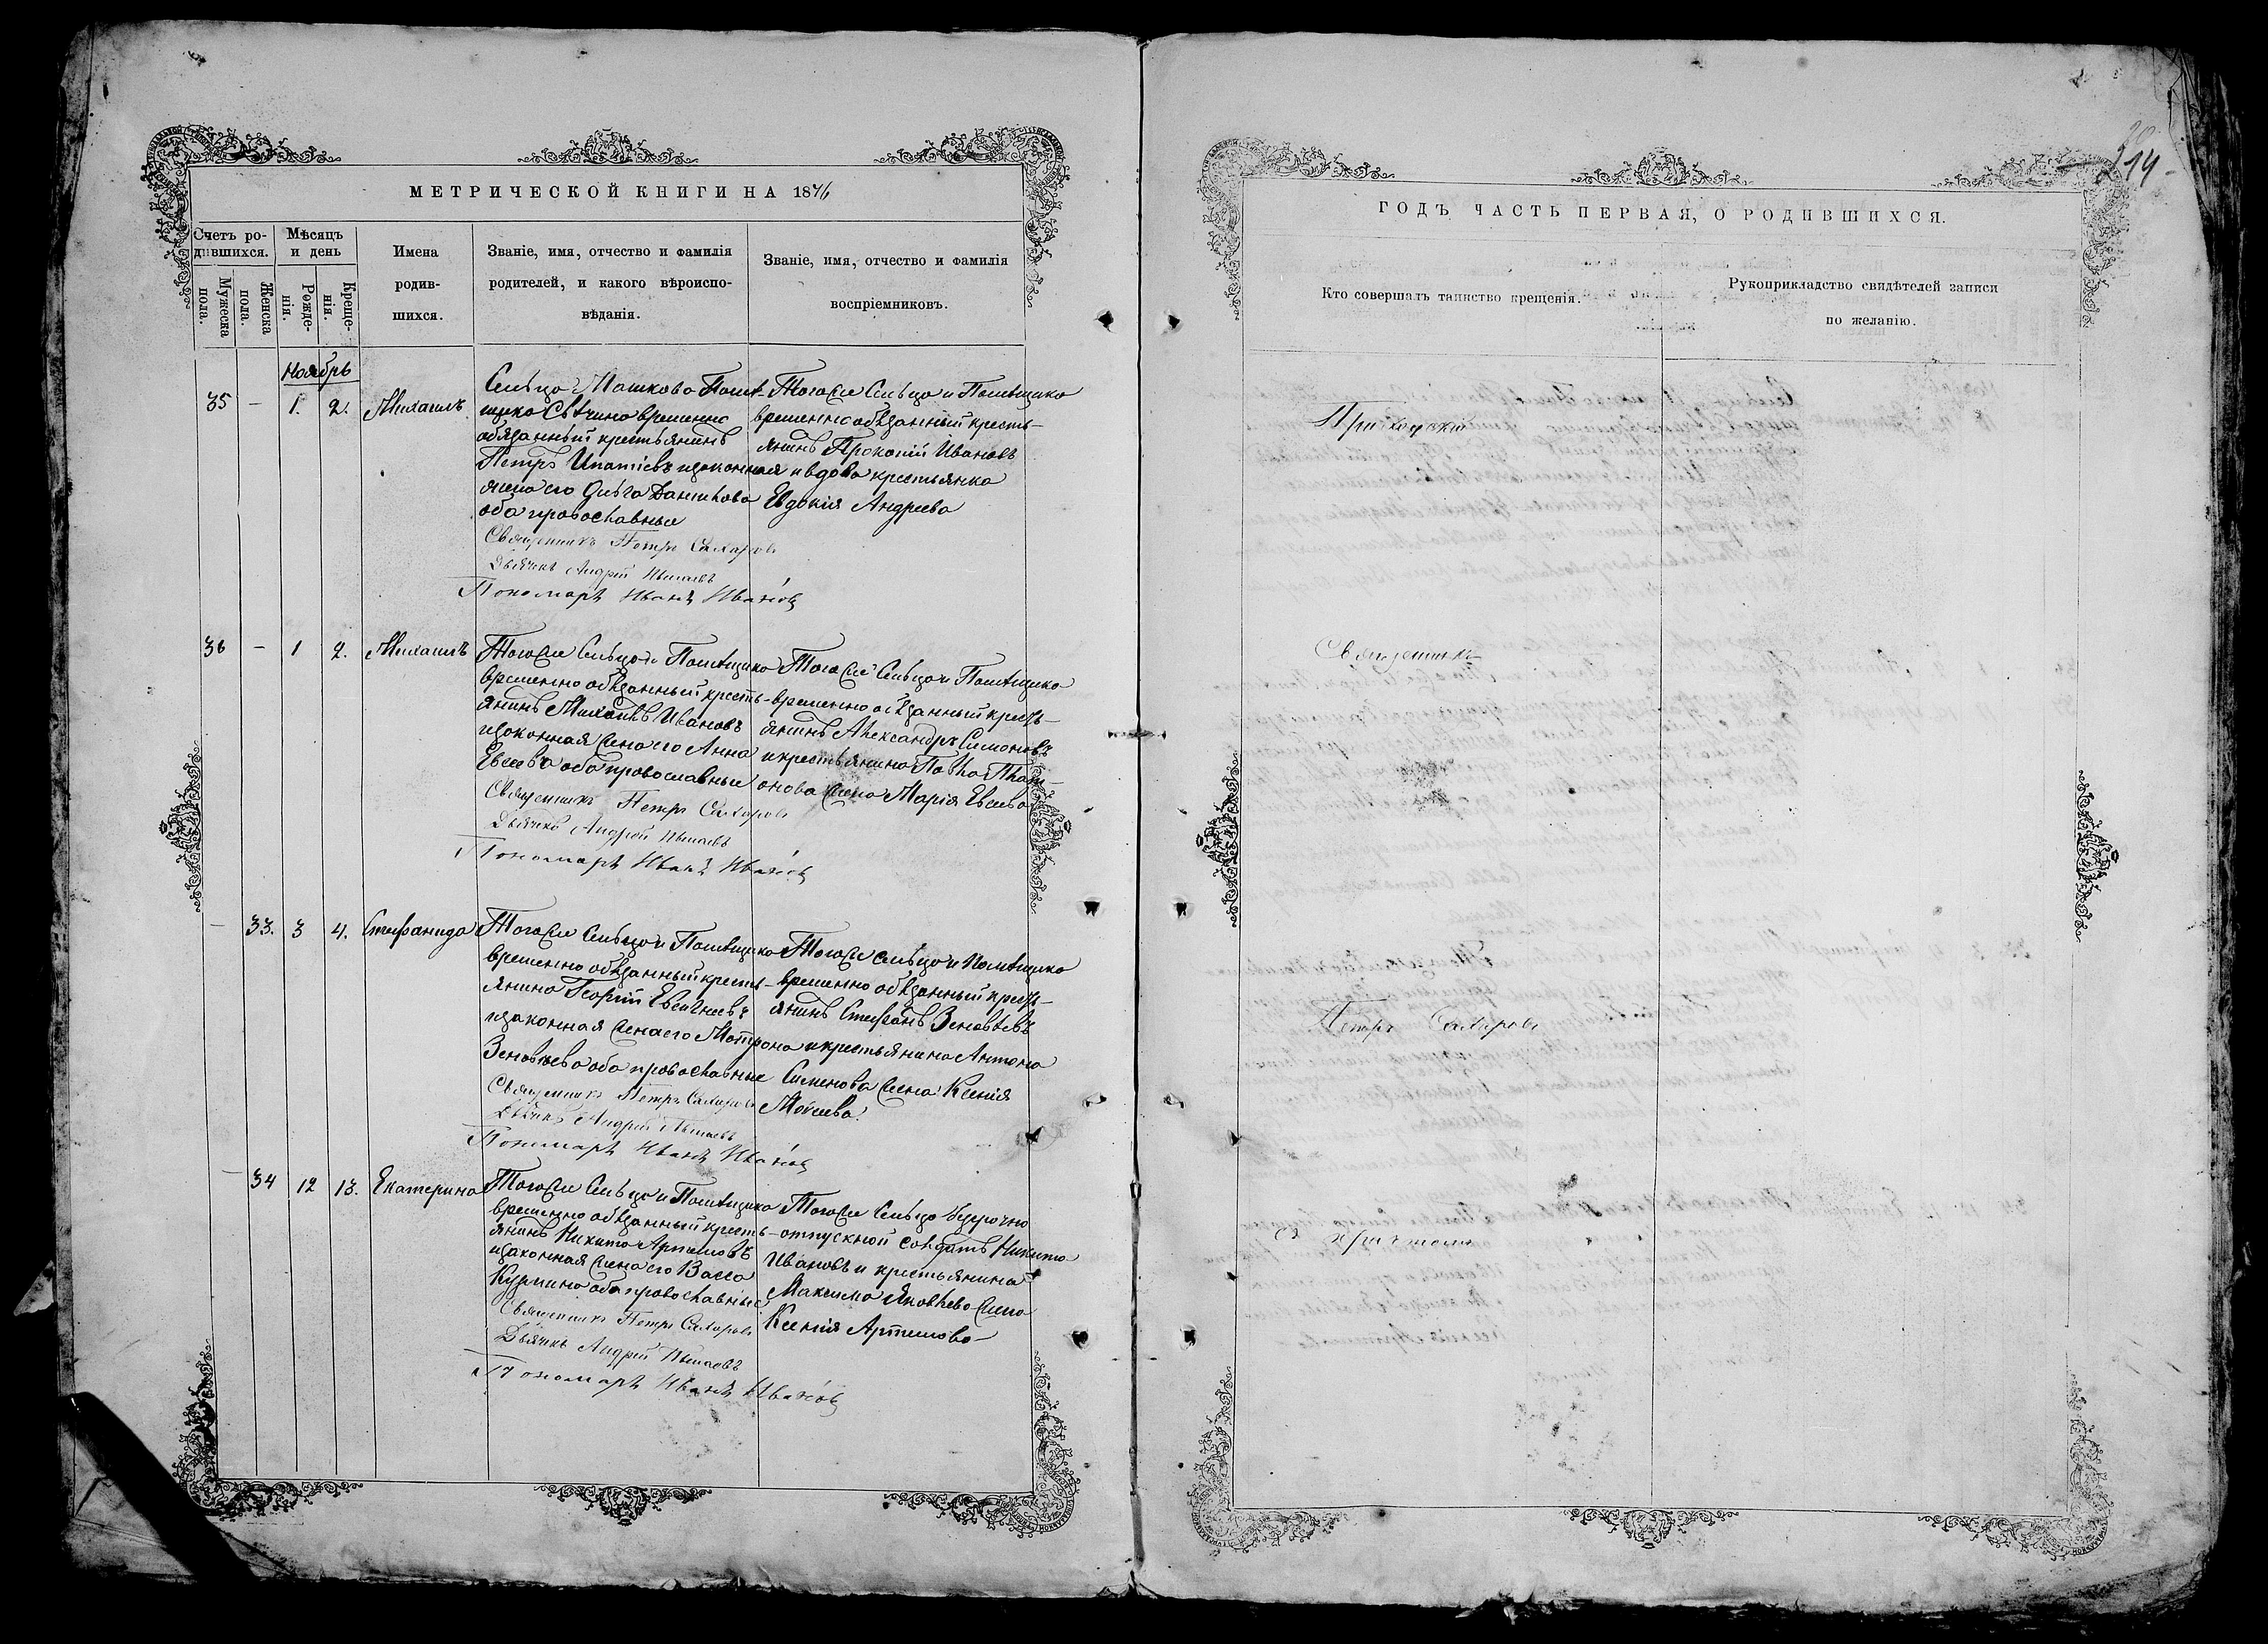 МЕТРИЧЕСКОЙ КНИГИ НА 1876
Счетъ ро-
дившихся.
Мѣсяцъ
и день
Мужеска
пола.
Женска
пола.
Рожде-
нія.
Креще-
нія.
Имена
родив-
шихся.
Званіе, имя, отчество и фамилія
родителей, и какого вѣроиспо-
вѣданія.
Званіе, имя, отчество и фамилія
воспріемниковъ.
Ноябрь
35 - 1. 2. Михаилъ
Сельца Машкова Помѣ-
щика Свѣчина временно
обязанный крестьянинъ
Петръ Ипатіевъ и законная
жена его Ольга Данилова
оба православные
Тогоже Сельца и Помѣщика
временно обязанный кресть-
янинъ Прокопій Ивановъ
и вдова крестьянка
Евдокія Андреева
Священникъ Петръ Сахаровъ
Дьячекъ Андрей
Пономарь Иванъ Ивановъ
36 - 1 2. Михаилъ
Тогоже Сельца и Помѣщика
временно обязанный кресть-
янинъ Михаилъ Ивановъ
и законная жена его Анна
Евсеева оба православные
Тогоже Сельца и Помѣщика
временно обязанный кресть-
янинъ Александръ Симоновъ
и крестьянина Павла Плат-
онова жена Марія Евсеева
Священникъ Петръ Сахаровъ
Дьячекъ Андрей
Пономарь Иванъ Ивановъ
- 33. 3 4. Стефанида
Тогоже Сельца и Помѣщика
временно обязанный кресть-
янинъ Георгій Евсигнеевъ
и законная жена его Матрона
Зеновьева оба православные
Тогоже сельца и Помѣщика
временно обязанный кресть-
янинъ Стефанъ Зеновьевъ
и крестьянина Антона
Сименова жена Ксенія
Моисеева
Священникъ Петръ Сахаровъ
Дьячекъ Андрей
Пономарь Иванъ Ивановъ
- 34 12 13. Екатерина
Тогоже Сельца и Помѣщика
временно обязанный кресть-
янинъ Никита Артемовъ
и законная жена его Васса
Кузмина оба православные
Тогоже Сельца безсрочно
отпускной солдатъ Никита
Ивановъ и крестьянина
Максима Яковлева жена
Ксенія Артемова
Священникъ Петръ Сахаровъ
Дьячекъ Андрей
Пономарь Иванъ Ивановъ
14
ГОДЪ ЧАСТЬ ПЕРВАЯ, О РОДИВШИХСЯ.
Кто совершалъ таинство крещенія.
Рукоприкладство свидѣтелей записи
по желанію.
Приходскій
Священникъ
Петръ Сахаровъ
съ причтомъ